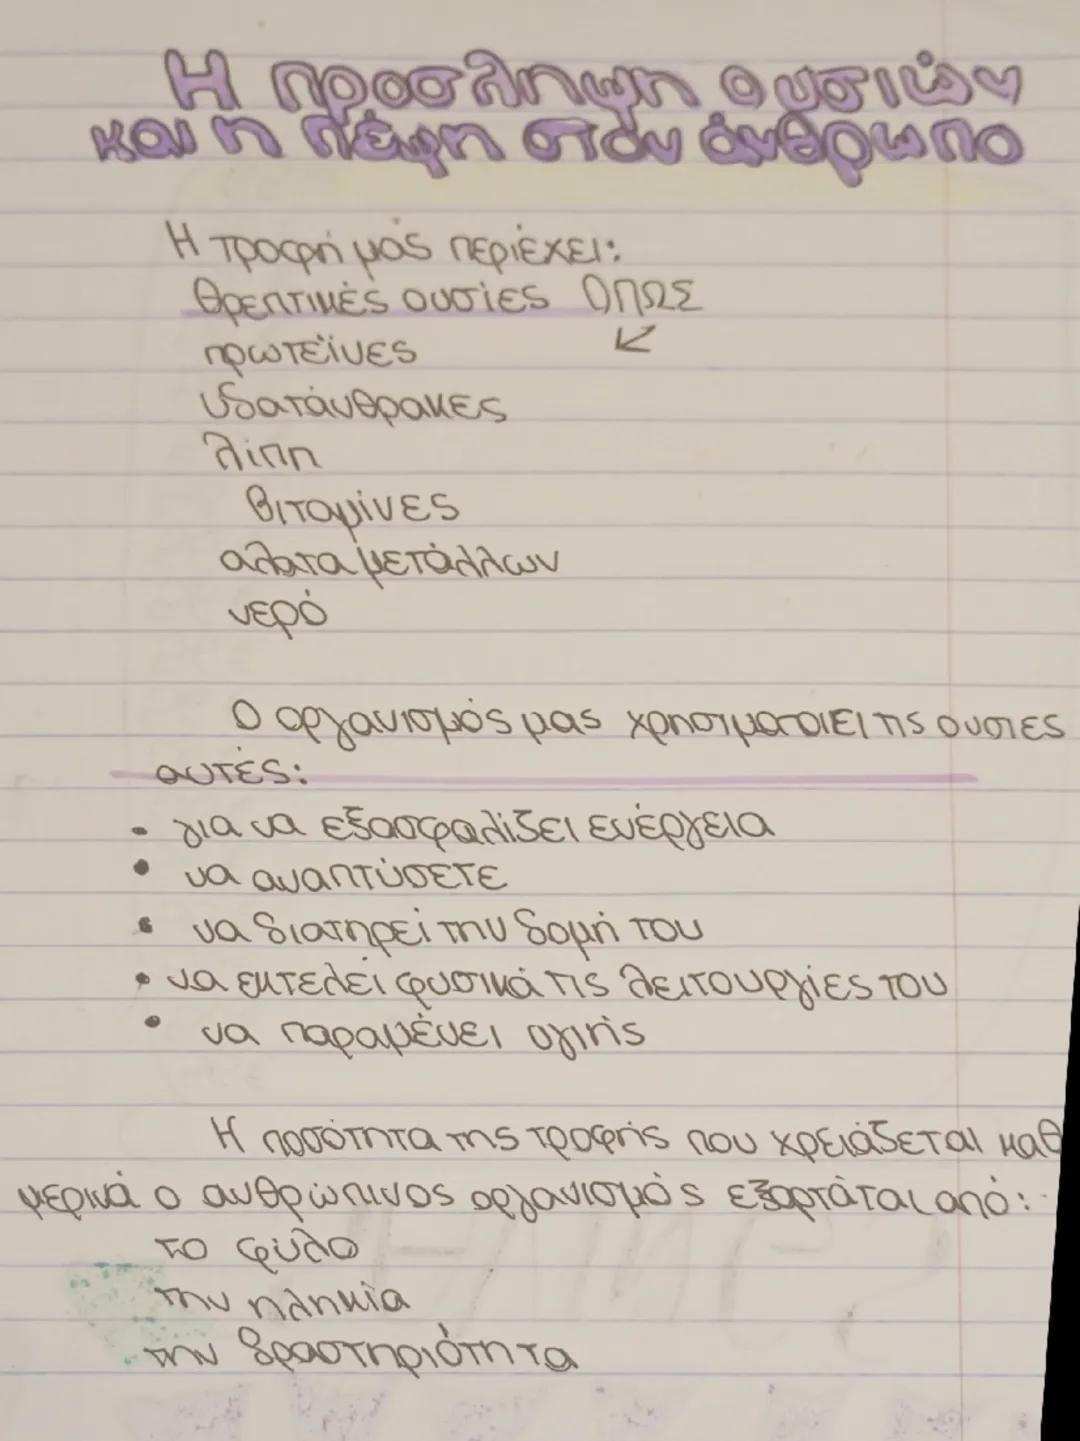 Η προσληψη ουσιών
και η πέψη στον άνθρωπο
Η τροφή μας περιέχει:
Θρεπτικές ουσίες ΟΠΩΣ
πρωτεϊνες
υδατάνθρακες
λίπη
βιταμίνες
αλατα μετάλλων
νερό
Ο οργανισμός μας χρησιματοιεί τις ουσιες
αυτές:
• για να εξασφαλίζει ενέργεια
• να αναπτύσετε
• να διατηρεί την δομή του
• να εκτελεί φυσικά τις λειτουργίες του
• να παραμένει υγιής
Η ποσότητα της τροφής που χρειάζεται καθ
μερινά ο ανθρώπινος οργανισμός εξαρτάται από:
το φύλο
την ηληκία
την δραστηριότητα